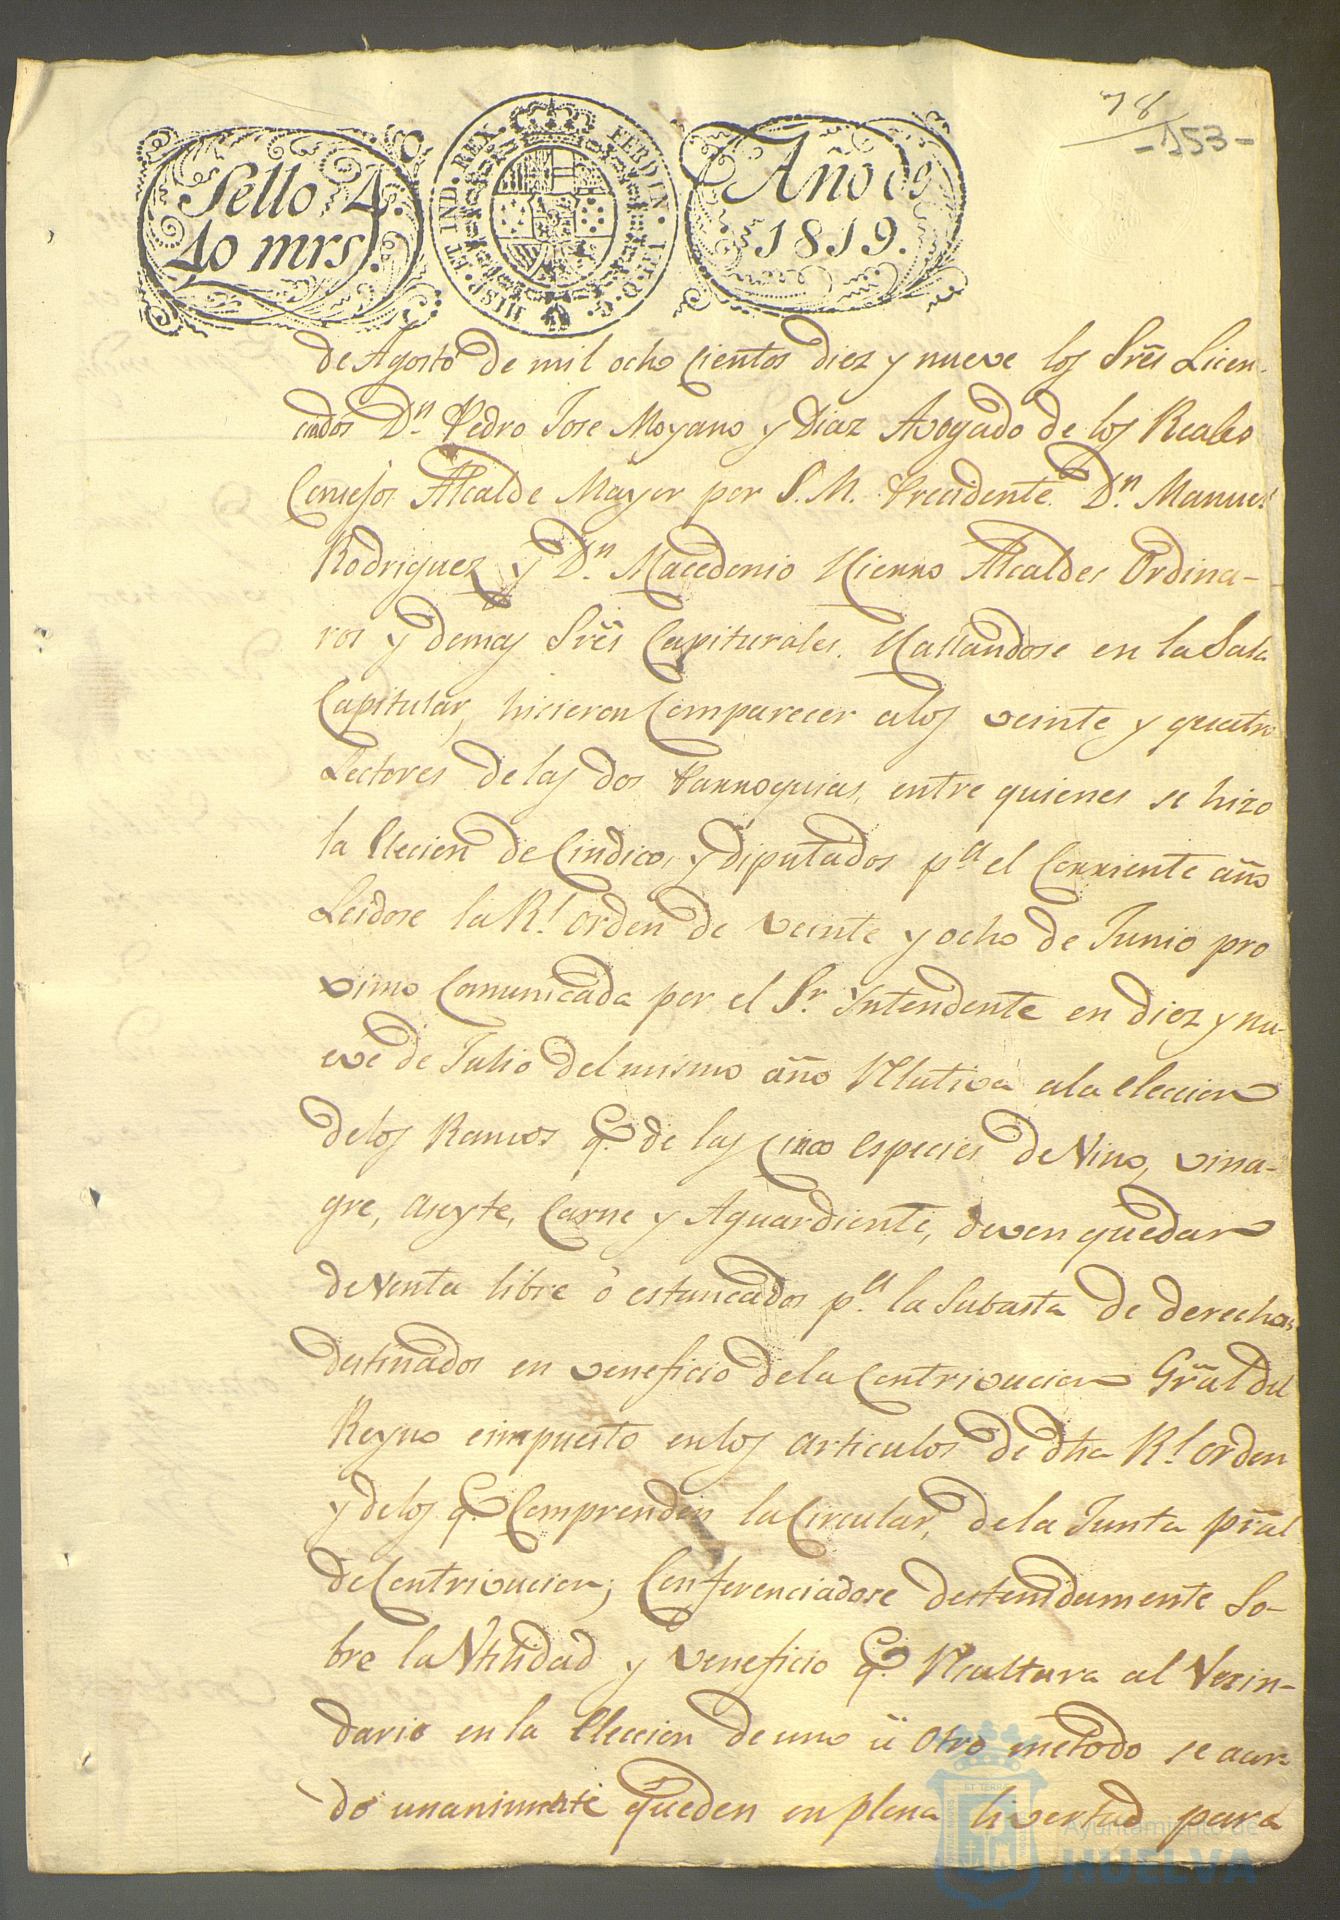 78
-153-
Sello 4.
40 mrs.
HISP. ET IND. REX. FERDIN. VII. D. G.
Año de
1819.
de Agosto de mil ocho cientos diez y nueve los Srēs Licen-
ciados Dn. Pedro Jose Moyano y Diaz Avogado de los Reales
Consejos Alcalde Mayor por S. M. Precidente Dn. Manuel
Rodriguez y Dn. Macedonio Hierro Alcaldes Ordina-
ros y demas Srēs Capiturales. Hallandose en la Sala
Capitular, hicieron Comparecer alos veinte y quatro
Lectores de las dos Parroquias, entre quienes se hizo
la Elecion de Cindicos y diputados pa. el Corriente año
Leidose la Rl. orden de veinte y ocho de Junio pro
ximo Comunicada por el Sr. Yntendente en diez y nu-
eve de Julio del mismo año Relativa ala eleccion
delos Ramos q. de las Cinco especies de Vino, vina-
gre, aseyte, Carne y Aguardiente, deven quedar
de Venta libre ó estancados pa. la Subasta de derechos
destinados en veneficio dela Contrivucion Grãl del
Reyno eimpuesto enlos articulos de dha Rl. orden
y delos q. Comprenden la Circular, dela Junta prãl
de Contrivucion; Conferenciadose destenidamente So-
bre la Vtilidad y veneficio q. Resultara al Vecin-
dario en la Eleccion de uno ü otro metodo se acor
dó unanimente queden en plena livertad para
ET TERRAE
Ayuntamiento de
HUELVA